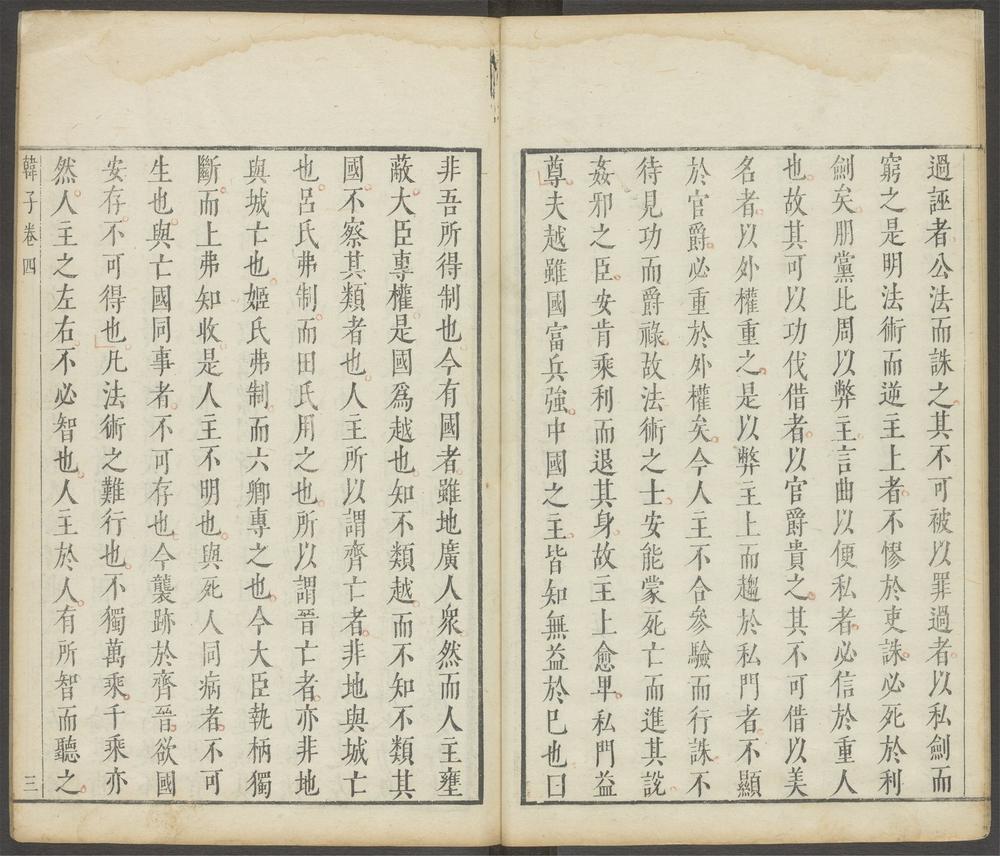 過誣者公法而誅之其不可被以罪過者以私劍而
窮之是明法術而逆主上者不憀於吏誅必死於利
劍矣朋黨比周以弊主言曲以便私者必信於重人
也故其可以功伐借者以官爵貴之其不可借以美
名者以外權重之是以弊主上而趨於私門者不顯
於官爵必重於外權矣今人主不合參驗而行誅不
待見功而爵祿故法術之士安能蒙死亡而進其說
姦邪之臣安肯乘利而退其身故主上愈卑私門益
尊夫越雖國富兵強中國之主皆知無益於己也曰
非吾所得制也今有國者雖地廣人衆然而人主壅
蔽大臣專權是國爲越也知不類越而不知不類其
國不察其類者也人主所以謂齊亡者非地與城亡
也呂氏弗制而田氏用之也所以謂晉亡者亦非地
與城亡也姬氏弗制而六卿專之也今大臣執柄獨
斷而上弗知收是人主不明也與死人同病者不可
生也與亡國同事者不可存也今襲跡於齊晉欲國
安存不可得也凡法術之難行也不獨萬乘千乘亦
然人主之左右不必智也人主於人有所智而聽之
韓子卷四
三